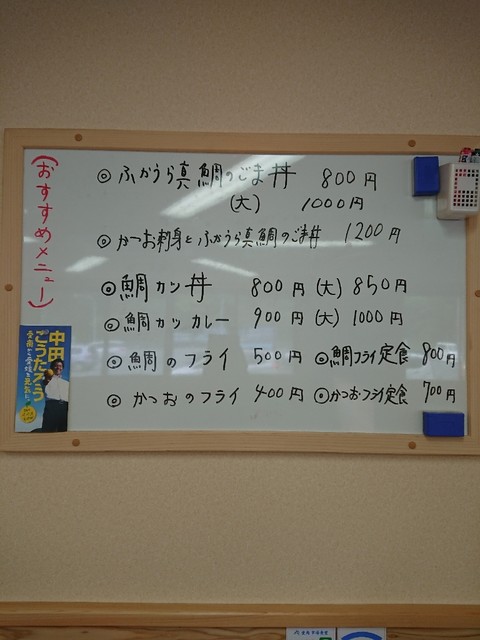 (おすすめメニュー)
◎ ふかうら真鯛のごま丼 800円
(大) 1000円
◎ かつお刺身とふかうら真鯛のごま丼 1200円
◎ 鯛カツ丼 800円 (大) 850円
◎ 鯛カツカレー 900円 (大) 1000円
◎ 鯛のフライ 500円 ◎鯛フライ定食 800円
◎ かつおのフライ 400円 ◎かつおフライ定食 700円
中田
ごうたろう